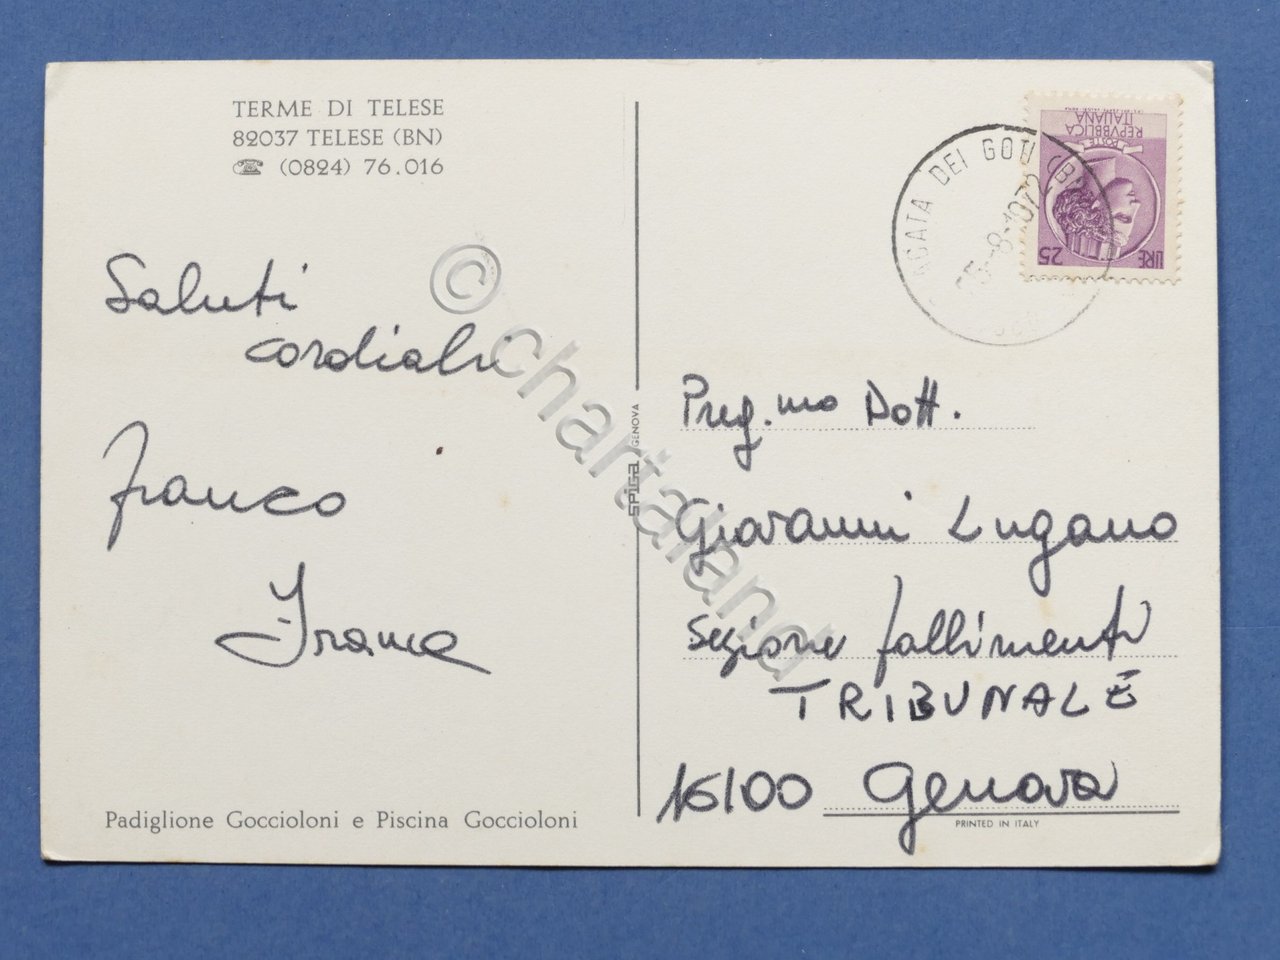 TERME DI TELESE
82037 TELESE (BN)
☎ (0824) 76.016
Saluti
cordiali
Franco
Padiglione Goccioloni e Piscina Goccioloni
SPIGA GENOVA
AGATA DEI GOTI (BN)
-8-1972
POSTE
REPVBBLICA
ITALIANA
LIRE 25
Preg.mo Dott.
Giovanni Lugano
Sezione fallimenti
TRIBUNALE
16100 Genova
PRINTED IN ITALY
© chartaland